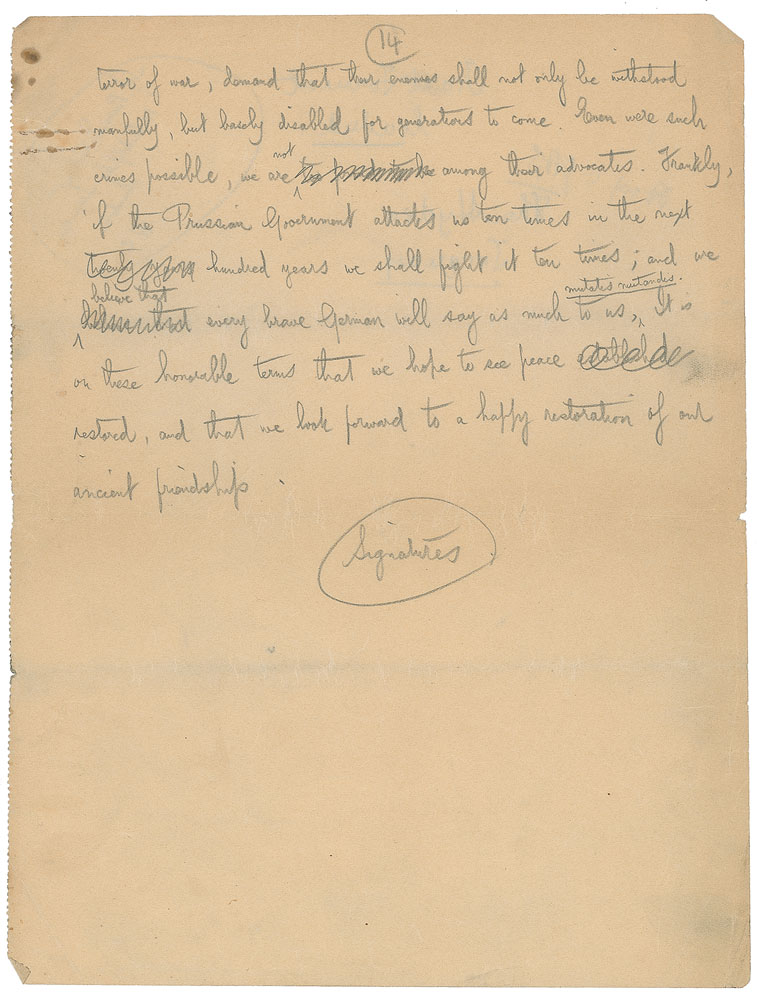 14
terror of war, demand that their enemies shall not only be withstood
manfully, but basely disabled for generations to come. Even were such
crimes possible, we are not among their advocates. Frankly,
if the Prussian Government attacks us ten times in the next
twenty years hundred years we shall fight it ten times; and we
believe that every brave German will say as much to us, mutatis mutandis. It is
on these honorable terms that we hope to see peace established
restored, and that we look forward to a happy restoration of our
ancient friendship.
Signatures